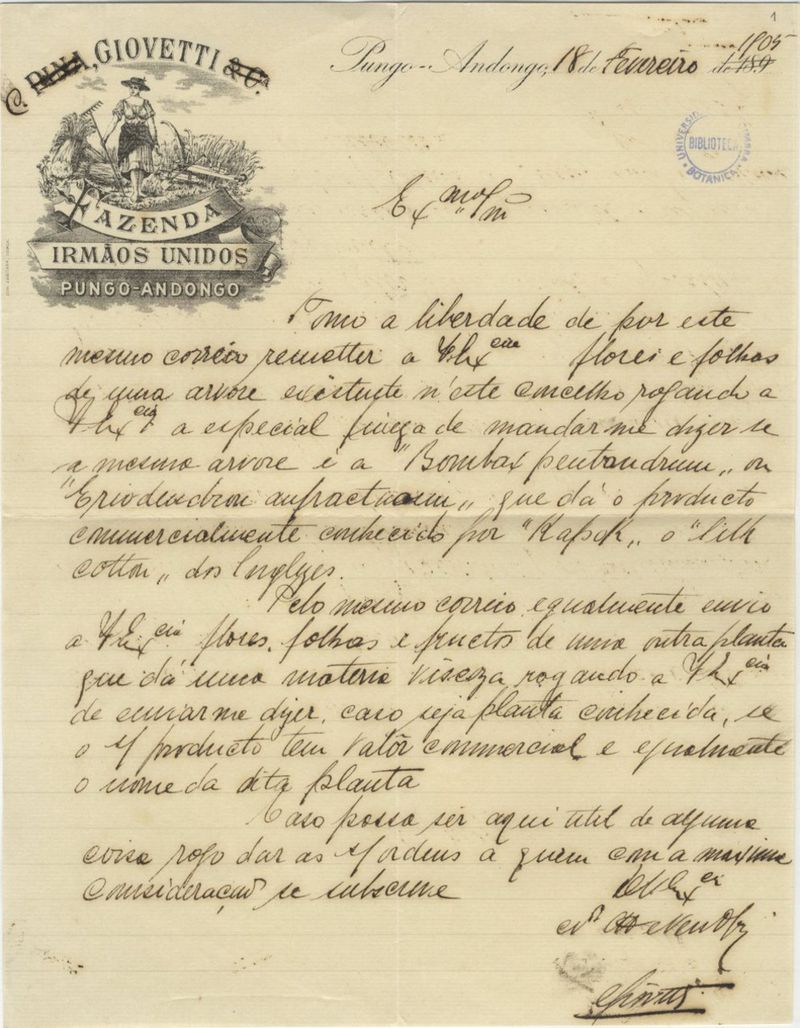 1
C. PINA, GIOVETTI & C.
Pungo-Andongo, 18 de Fevereiro de 189 1905
UNIVERSID
BIBLIOTECA
BOTANICA
FAZENDA
IRMÃOS UNIDOS
PUNGO-ANDONGO
Ex mo
Tomo a liberdade de por este
mesmo correio remetter a VEx cia flores e folhas
de uma arvore existente n'este concelho rogando a
VEx cia a especial fineza de mandar me dizer se
a mesma arvore é a "Bombax pentandrum„ ou
"Eriodendron anfractuosum„ que dá o producto
commercialmente conhecido por "Kapok„ o "Silk
cotton„ dos Inglezes.
Pelo mesmo correio egualmente envio
a VEx cia flores, folhas e fructos de uma outra planta
que dá uma materia viscoza, rogando a VEx cia
de enviar me dizer, caso seja planta conhecida, se
o producto tem valôr commercial e egualmente
o nome da dita planta
Caso possa ser aqui util de alguma
coisa rogo dar as ordens a quem com a maxima
consideração se subscreve
De VEx cia
Giovetti